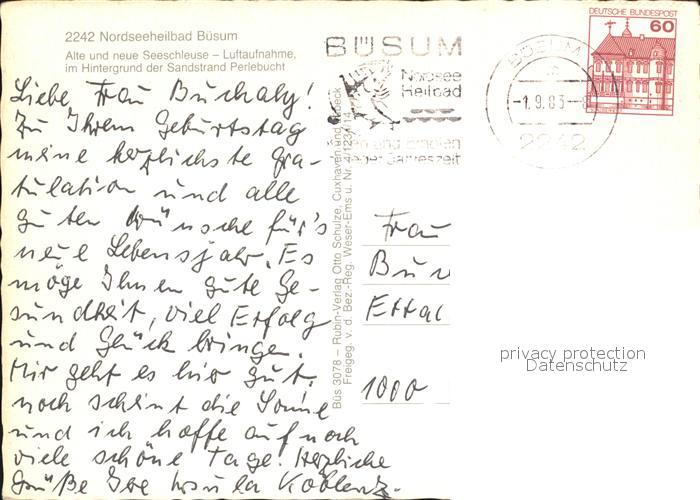 2242 Nordseeheilbad Büsum
Alte und neue Seeschleuse – Luftaufnahme,
im Hintergrund der Sandstrand Perlebucht
Liebe Frau Buchaly!
Zu Ihrem Geburtstag
meine herzlichste Gra-
tulation und alle
guten Wünsche für's
neue Lebensjahr. Es
möge Ihnen gute Ge-
sundheit, viel Erfolg
und Glück bringen.
Mir geht es hier gut,
noch scheint die Sonne
und ich hoffe auf noch
viele schöne Tage! Herzliche
Grüße Ihre Ursula Koblenz.
Büs 3078 – Rubin-Verlag Otto Schulze, Cuxhaven und Lübeck
Freigeg. v. d. Bez.-Reg. Weser-Ems u. Nr.
BÜSUM
Nordsee
Heilbad
und Erholen
jeder Jahreszeit
BÜSUM
-1.9.83
2242
DEUTSCHE BUNDESPOST
60
Frau
Bu
Ettal
1000
privacy protection
Datenschutz